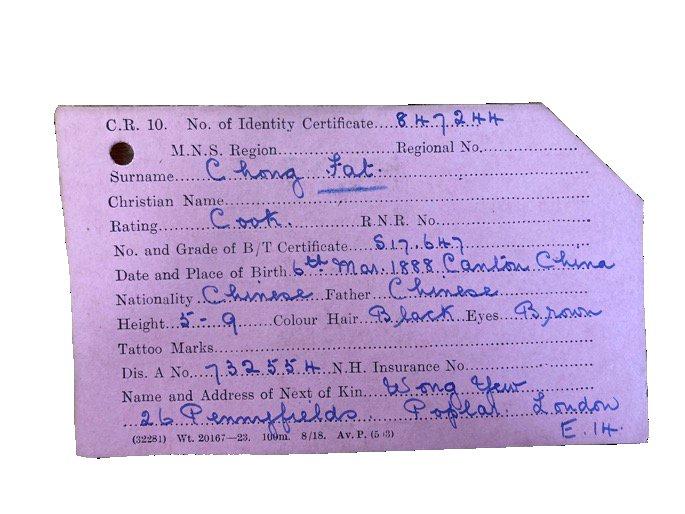 C.R. 10. No. of Identity Certificate....847244
M.N.S. Region....................Regional No....................
Surname....Chong Fat.
Christian Name....................
Rating....Cook.....R.N.R. No....................
No. and Grade of B/T Certificate....517.647
Date and Place of Birth 6th Mar. 1888 Canton China
Nationality Chinese Father Chinese
Height 5-9 Colour Hair Black Eyes Brown
Tattoo Marks....................
Dis. A No. 732554 N.H. Insurance No....................
Name and Address of Next of Kin. Wong Yew
26 Pennyfields. Poplar. London
E.14.
(32281) Wt. 20167—23. 100m. 8/18. Av. P.